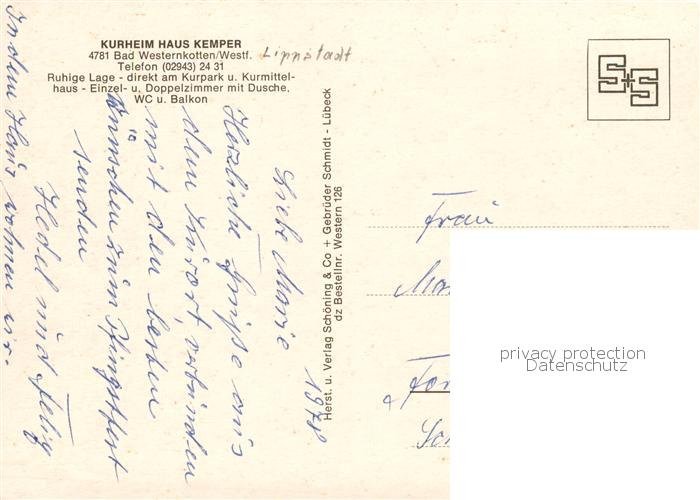 KURHEIM HAUS KEMPER
4781 Bad Westernkotten/Westf.
Lippstadt
Telefon (02943) 24 31
Ruhige Lage - direkt am Kurpark u. Kurmittel-
haus - Einzel- u. Doppelzimmer mit Dusche,
WC u. Balkon
1978
Liebe Marie
Herzliche Grüße aus
dem Kurort, verbunden
mit den besten
Wünschen zum Pfingstfest
senden
Hedel und
In dem Haus wohnen wir.
Herst. u. Verlag Schöning & Co + Gebrüder Schmidt - Lübeck
dz Bestellnr. Western 126
S+S
Frau
privacy protection
Datenschutz